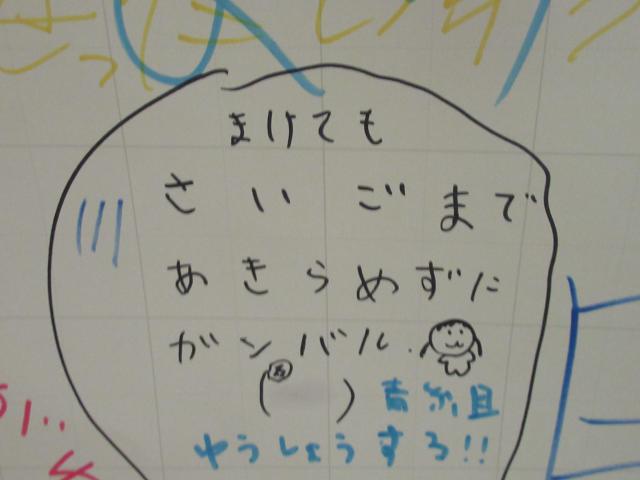 まけても
さいごまで
あきらめずに
ガンバル.
( ) 青組
ゆうしょうする!!